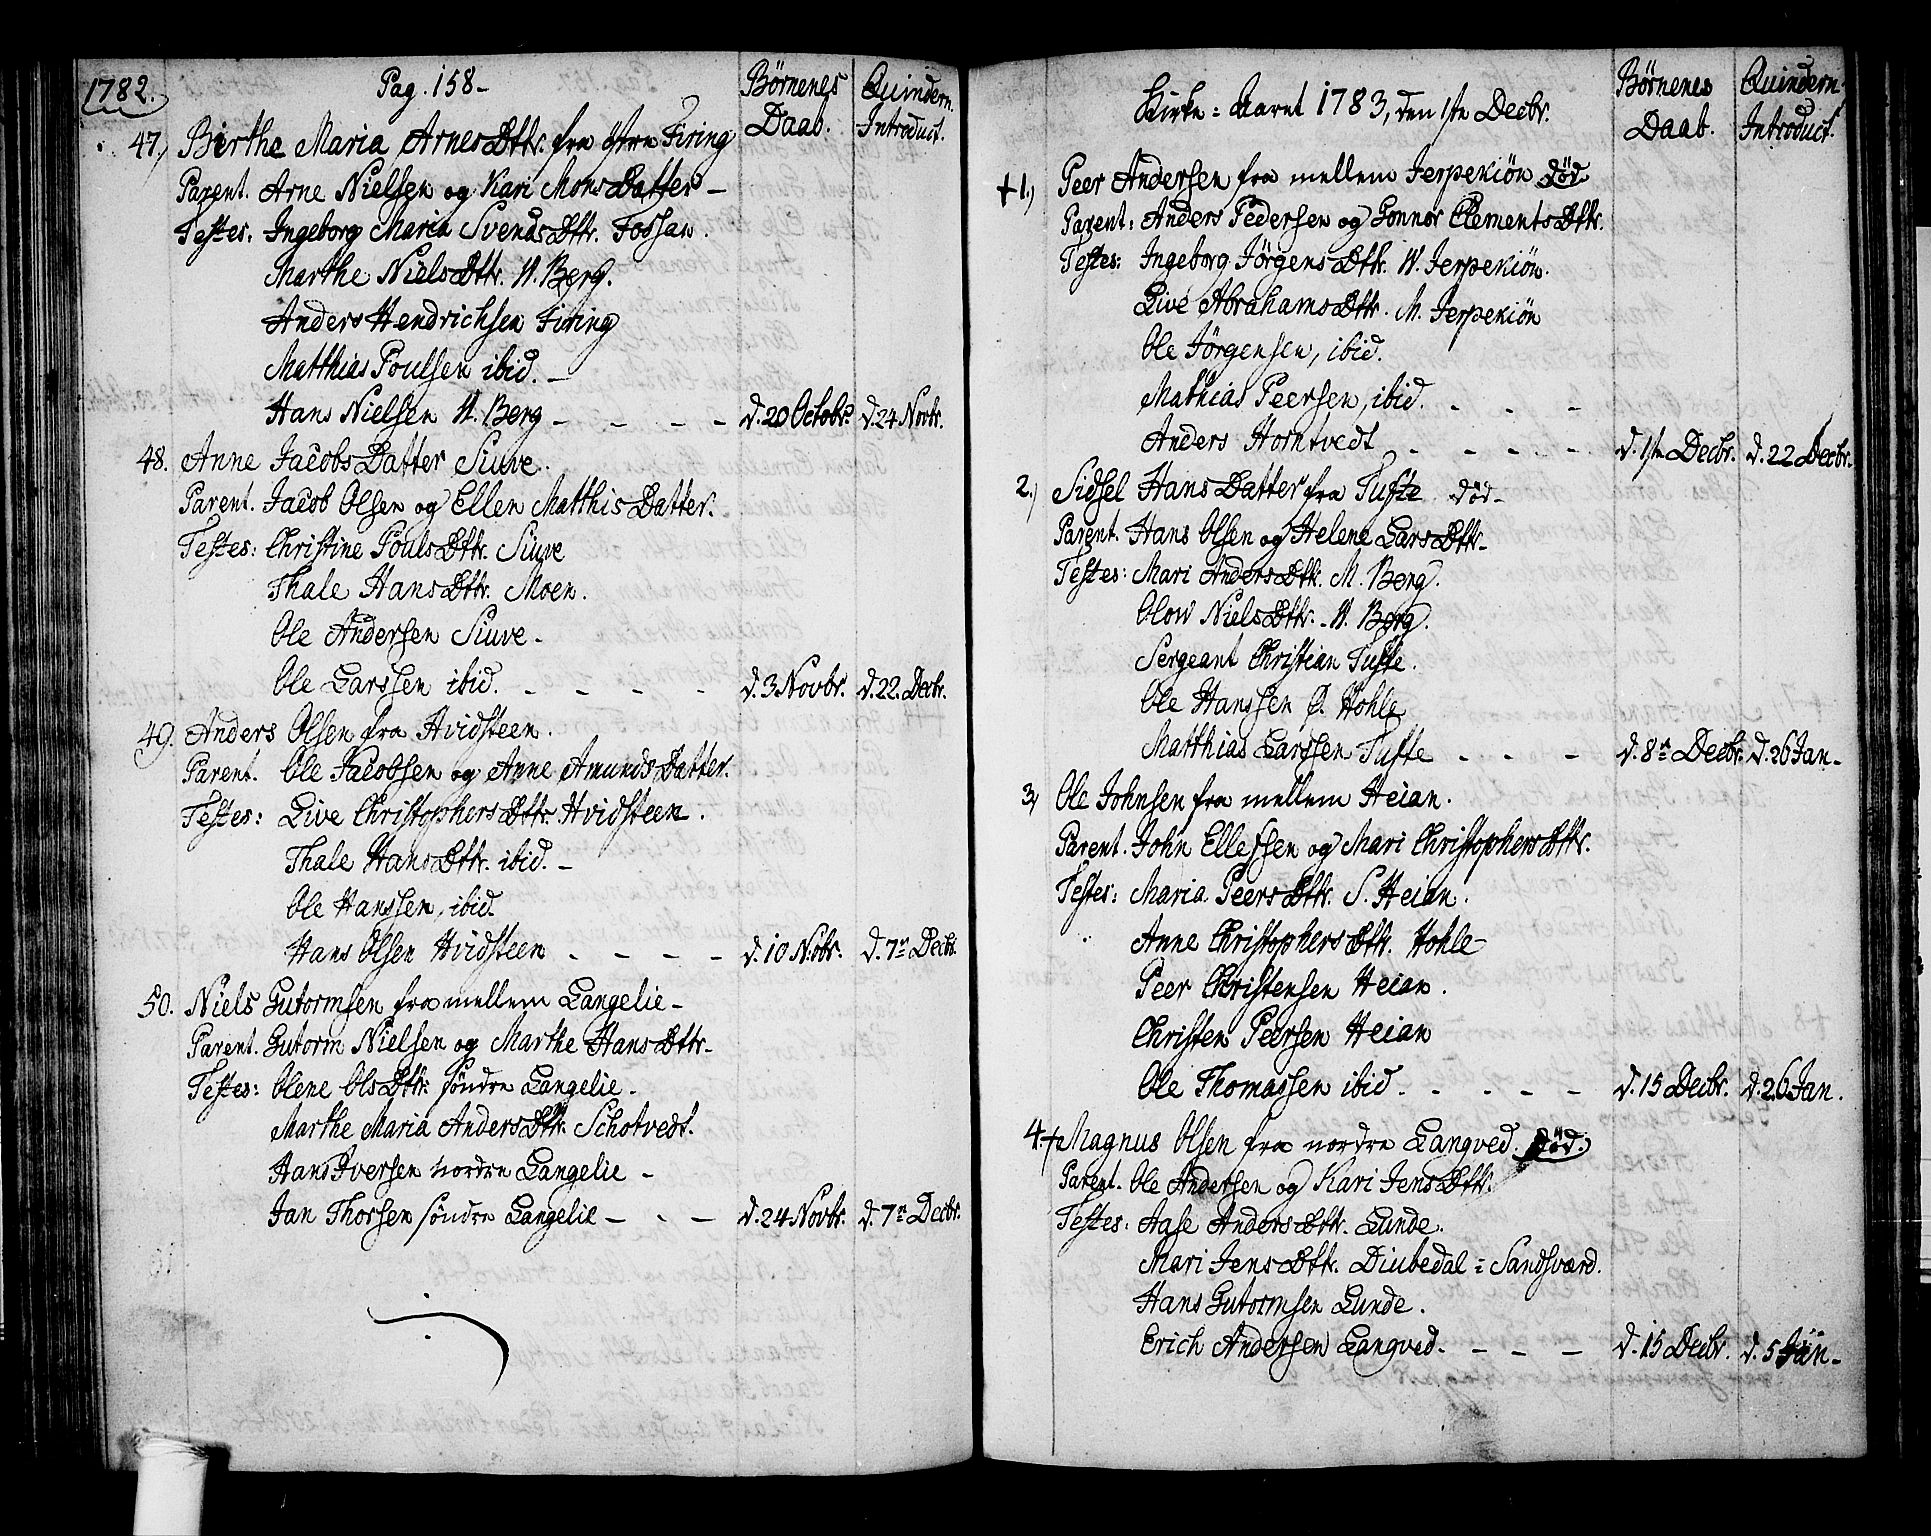 1782.
Pag. 158-
Børnenes Daab.
Quindern. Introduct.
47.) Birthe Maria ArnesDttr. fra østre Firing
Parent. Arne Nielsen og Kari MonsDatter -
Testes: Ingeborg Maria SvendsDttr. Fossan.
Marthe NielsDttr. N. Berg.
Anders Hendrichsen Firing
Matthias Poulsen ibid. -
Hans Nielsen N. Berg - - - - d. 20 Octobr. d. 24 Novbr.
48. Anne JacobsDatter Siuve.
Parent. Jacob Olsen og Ellen MatthisDatter.
Testes: Christine PoulsDttr. Siuve
Thale HansDttr. Moen.
Ole Andersen Siuve -
Ole Larssen ibid. - - - - d. 3 Novbr. d. 22. Decbr.
49. Anders Olsen fra Hvidsteen.
Parent. Ole Jacobsen og Anne AmundsDatter.
Testes: Live ChristophersDttr. Hvidsteen.
Thale HansDttr. ibid. -
Ole Hanssen, ibid.
Hans Olsen Hvidsteen - - - - d. 10 Nobr. d. 7n Decbr.
50. Niels Gutormsen fra mellem Langelie -
Parent. Gutorm Nielsen og Marthe HansDttr -
Testes: Olene OlsDttr. søndre Langelie -
Marthe Maria AndersDttr. Schotvedt.
Hans Iversen nordre Langelie -
Jan Thorsen søndre Langelie - - - d. 24 Novbr. d. 7n Decbr.
Kirke = Aaret 1783, den 1ste Decbr.
Børnenes Daab.
Quindern. Introduct.
+1.) Peer Andersen fra mellem Jerpekiøn død
Parent: Anders Pedersen og Gonnor ClementsDttr.
Testes: Ingeborg JørgensDttr. N. Jerpekiøn.
Live AbrahamsDttr. M. Jerpekiøn
Ole Jørgensen, ibid.
Mathias Peersen, ibid. - - -
Anders Horntvedt - - - - - d. 1ste Decbr. d. 22 Decbr.
2.) Sidsel HansDatter fra Tufte død -
Parent. Hans Olsen og Helene LarsDttr -
Testes: Mari AndersDttr. M. Berg.
Olow NielsDttr. - N. Berg.
Sergeant Christian Tufte.
Ole Hanssen Ø. Hohle
Matthias Larssen Tufte - - - d. 8n Decbr. d. 26 Jan -
3.) Ole Johnsen fra mellem Heian.
Parent. John Ellefsen og Mari ChristophersDttr.
Testes: Maria PeersDttr. S. Heian.
Anne ChristophersDttr. Hohle -
Peer Christensen Heian.
Christen Peersen Heian
Ole Thomassen ibid - - - - - d. 15 Decbr. d. 26 Jan.
4.+ Magnus Olsen fra nordre Langved. død.
Parent. Ole Andersen og Kari JensDttr.
Testes: Aase AndersDttr. Lunde.
Mari JensDttr. Diubedal i Sandsværd.
Hans Gutormsen Lunde.
Erich Andersen Langved - - - - d. 15 Decbr. d. 5 Jan -